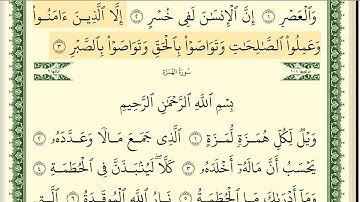 وَالْعَصْرِ ١ إِنَّ الْإِنسَٰنَ لَفِى خُسْرٍ ٢ إِلَّا الَّذِينَ ءَامَنُوا۟
وَعَمِلُوا۟ الصَّٰلِحَٰتِ وَتَوَاصَوْا۟ بِالْحَقِّ وَتَوَاصَوْا۟ بِالصَّبْرِ ٣
سُورَةُ الهُمَزَةِ
بِسْمِ اللَّهِ الرَّحْمَٰنِ الرَّحِيمِ
وَيْلٌ لِّكُلِّ هُمَزَةٍ لُّمَزَةٍ ١ الَّذِى جَمَعَ مَالًا وَعَدَّدَهُۥ ٢
يَحْسَبُ أَنَّ مَالَهُۥٓ أَخْلَدَهُۥ ٣ كَلَّا ۖ لَيُنۢبَذَنَّ فِى الْحُطَمَةِ ٤
وَمَآ أَدْرَىٰكَ مَا الْحُطَمَةُ ٥ نَارُ اللَّهِ الْمُوقَدَةُ ٦ الَّتِى